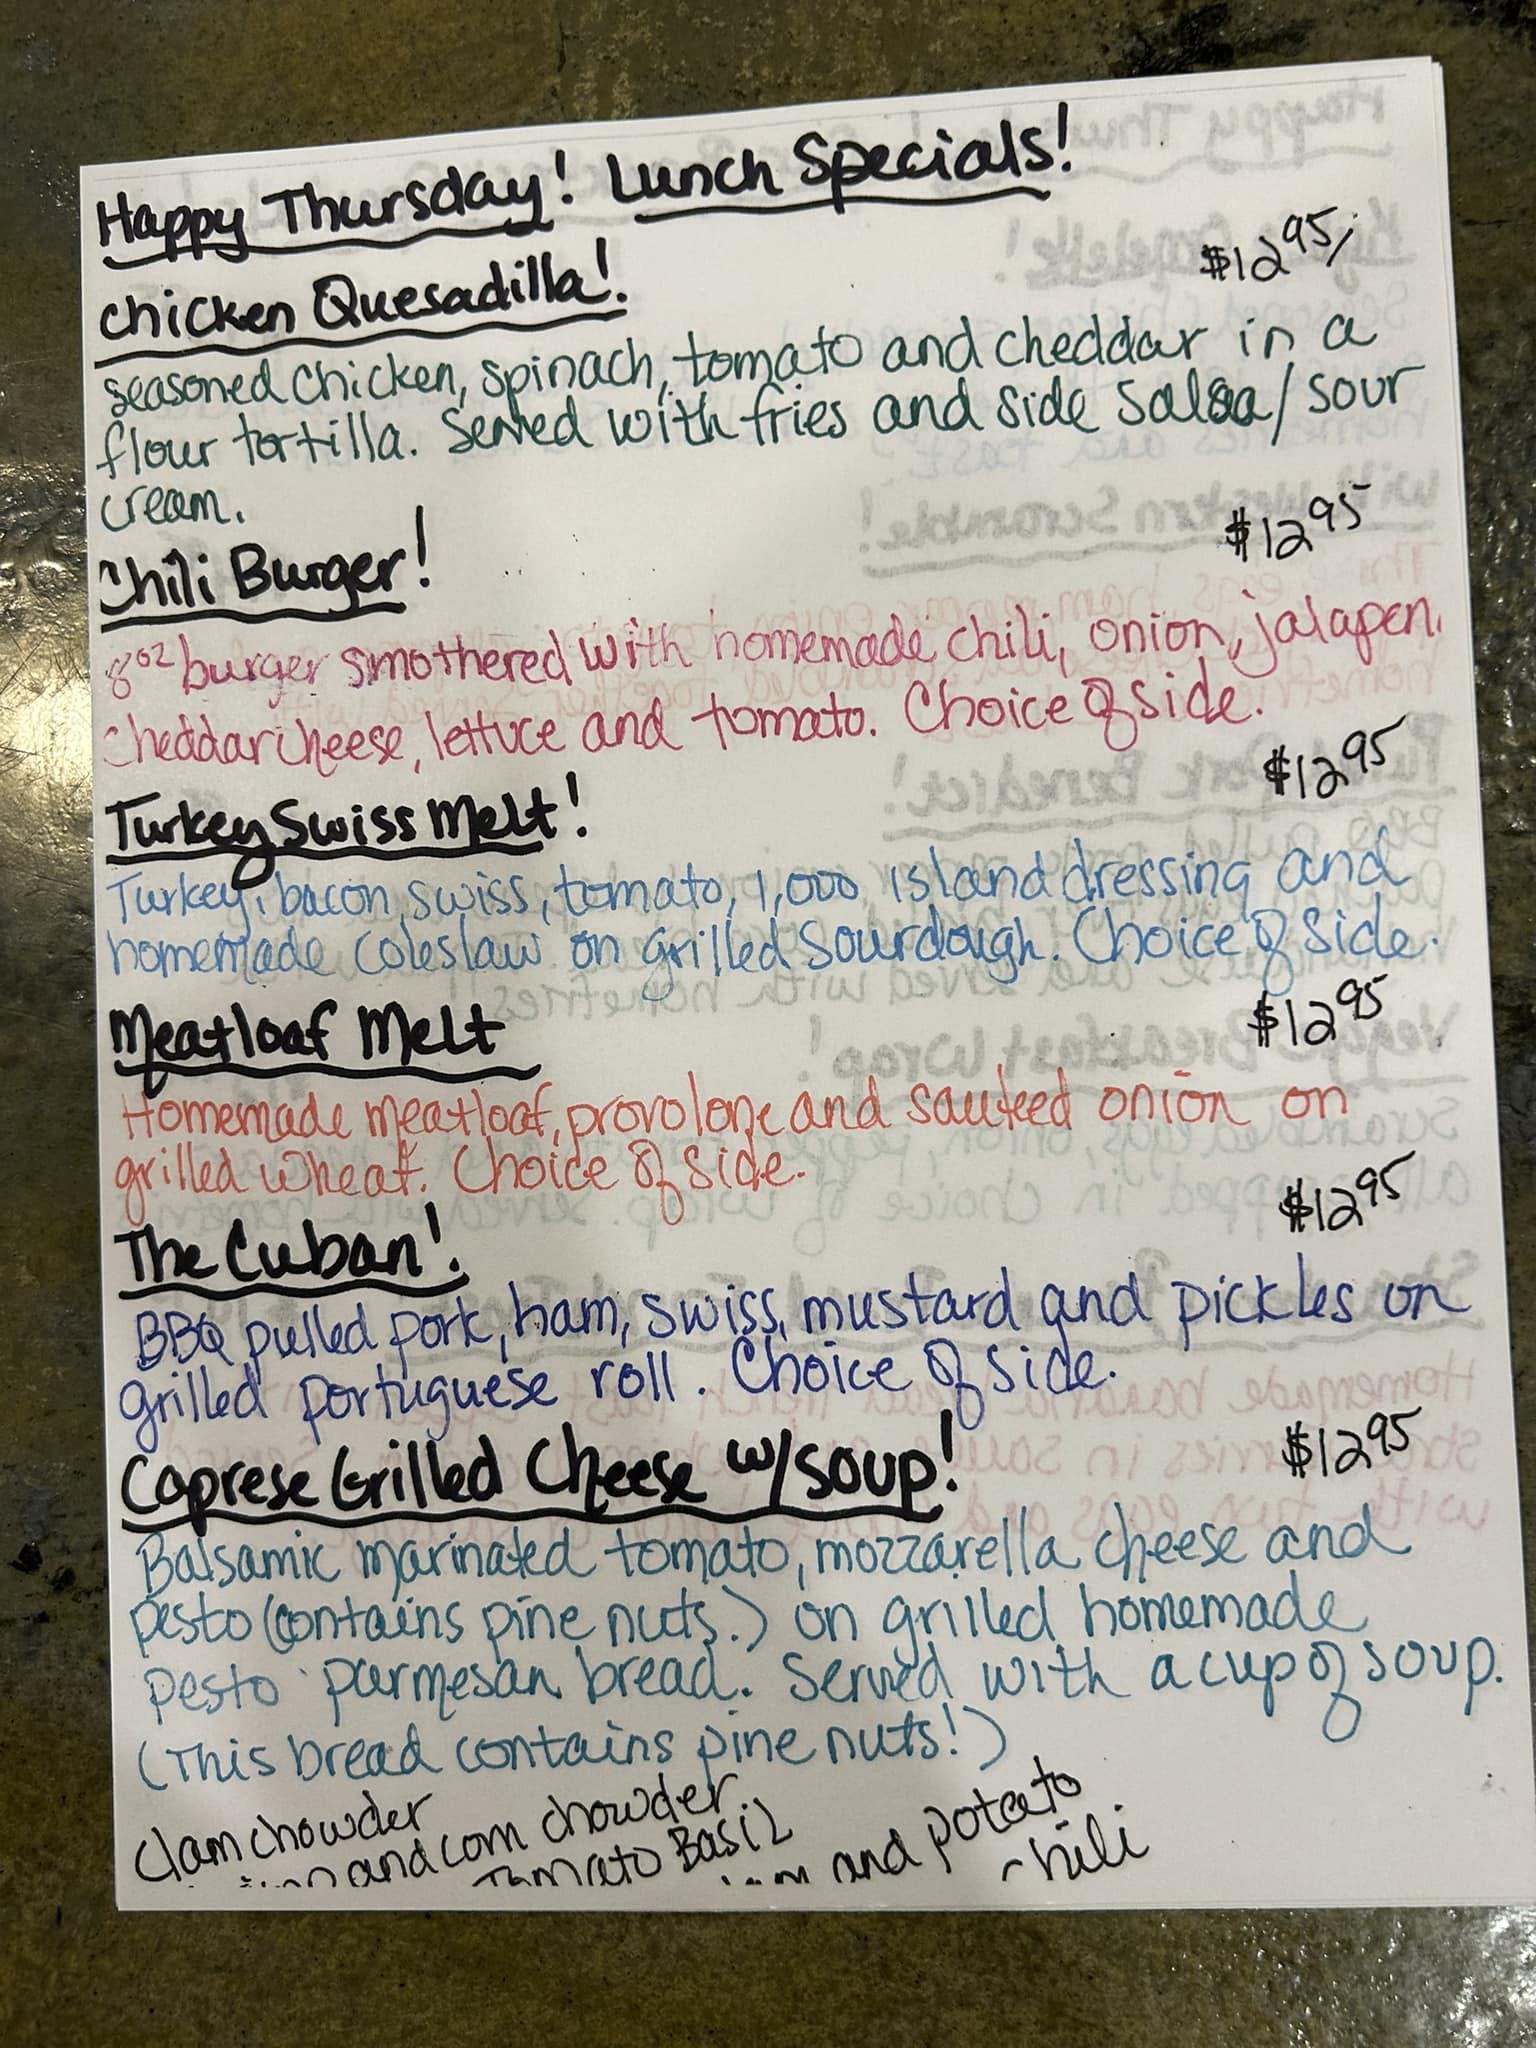 Happy Thursday! Lunch Specials!
Chicken Quesadilla! $12.95
seasoned chicken, spinach, tomato and cheddar in a
flour tortilla. Served with fries and side salsa/sour
cream.
Chili Burger! $12.95
8oz burger smothered with homemade chili, onion, jalapen
cheddar cheese, lettuce and tomato. Choice of side.
Turkey Swiss Melt! $12.95
Turkey, bacon, swiss, tomato, 1,000 island dressing and
homemade coleslaw on grilled sourdough. Choice of side.
Meatloaf Melt $12.95
Homemade meatloaf, provolone and sauteed onion on
grilled wheat. Choice of side.
The Cuban! $12.95
BBQ pulled pork, ham, swiss, mustard and pickles on
grilled portuguese roll. Choice of side.
Caprese Grilled Cheese w/soup! $12.95
Balsamic marinated tomato, mozzarella cheese and
pesto (contains pine nuts.) on grilled homemade
pesto parmesan bread. Served with a cup of soup.
(This bread contains pine nuts!)
Clam chowder
and corn chowder.
Tomato Basil
and potato
chili